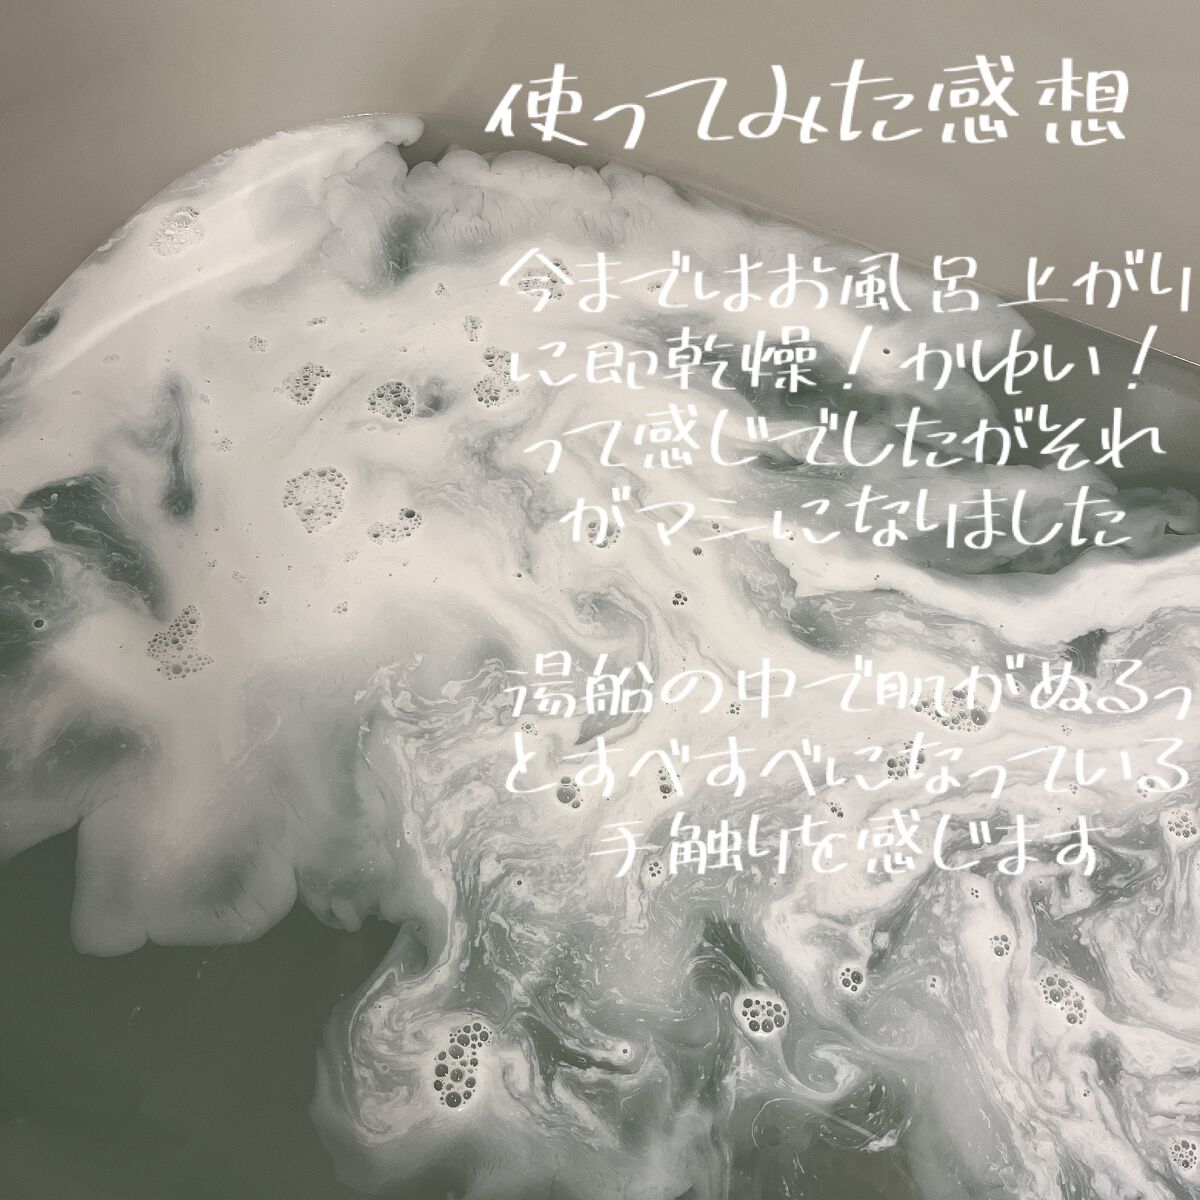 使ってみた感想
今まではお風呂上がり
に即乾燥！かゆい！
って感じでしたがそれ
がマシになりました
湯船の中で肌がぬるっ
とすべすべになっている
手触りを感じます